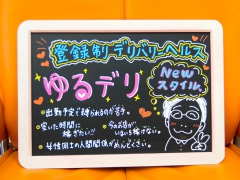 登録制デリバリーヘルス
ゆるデリ
New
スタイル
・出勤予定で縛られるのが苦手。
・空いた時間に
稼ぎたい!!
・今のお店が
いまいち稼げない。
・女性同士の人間関係がめんどくさい。